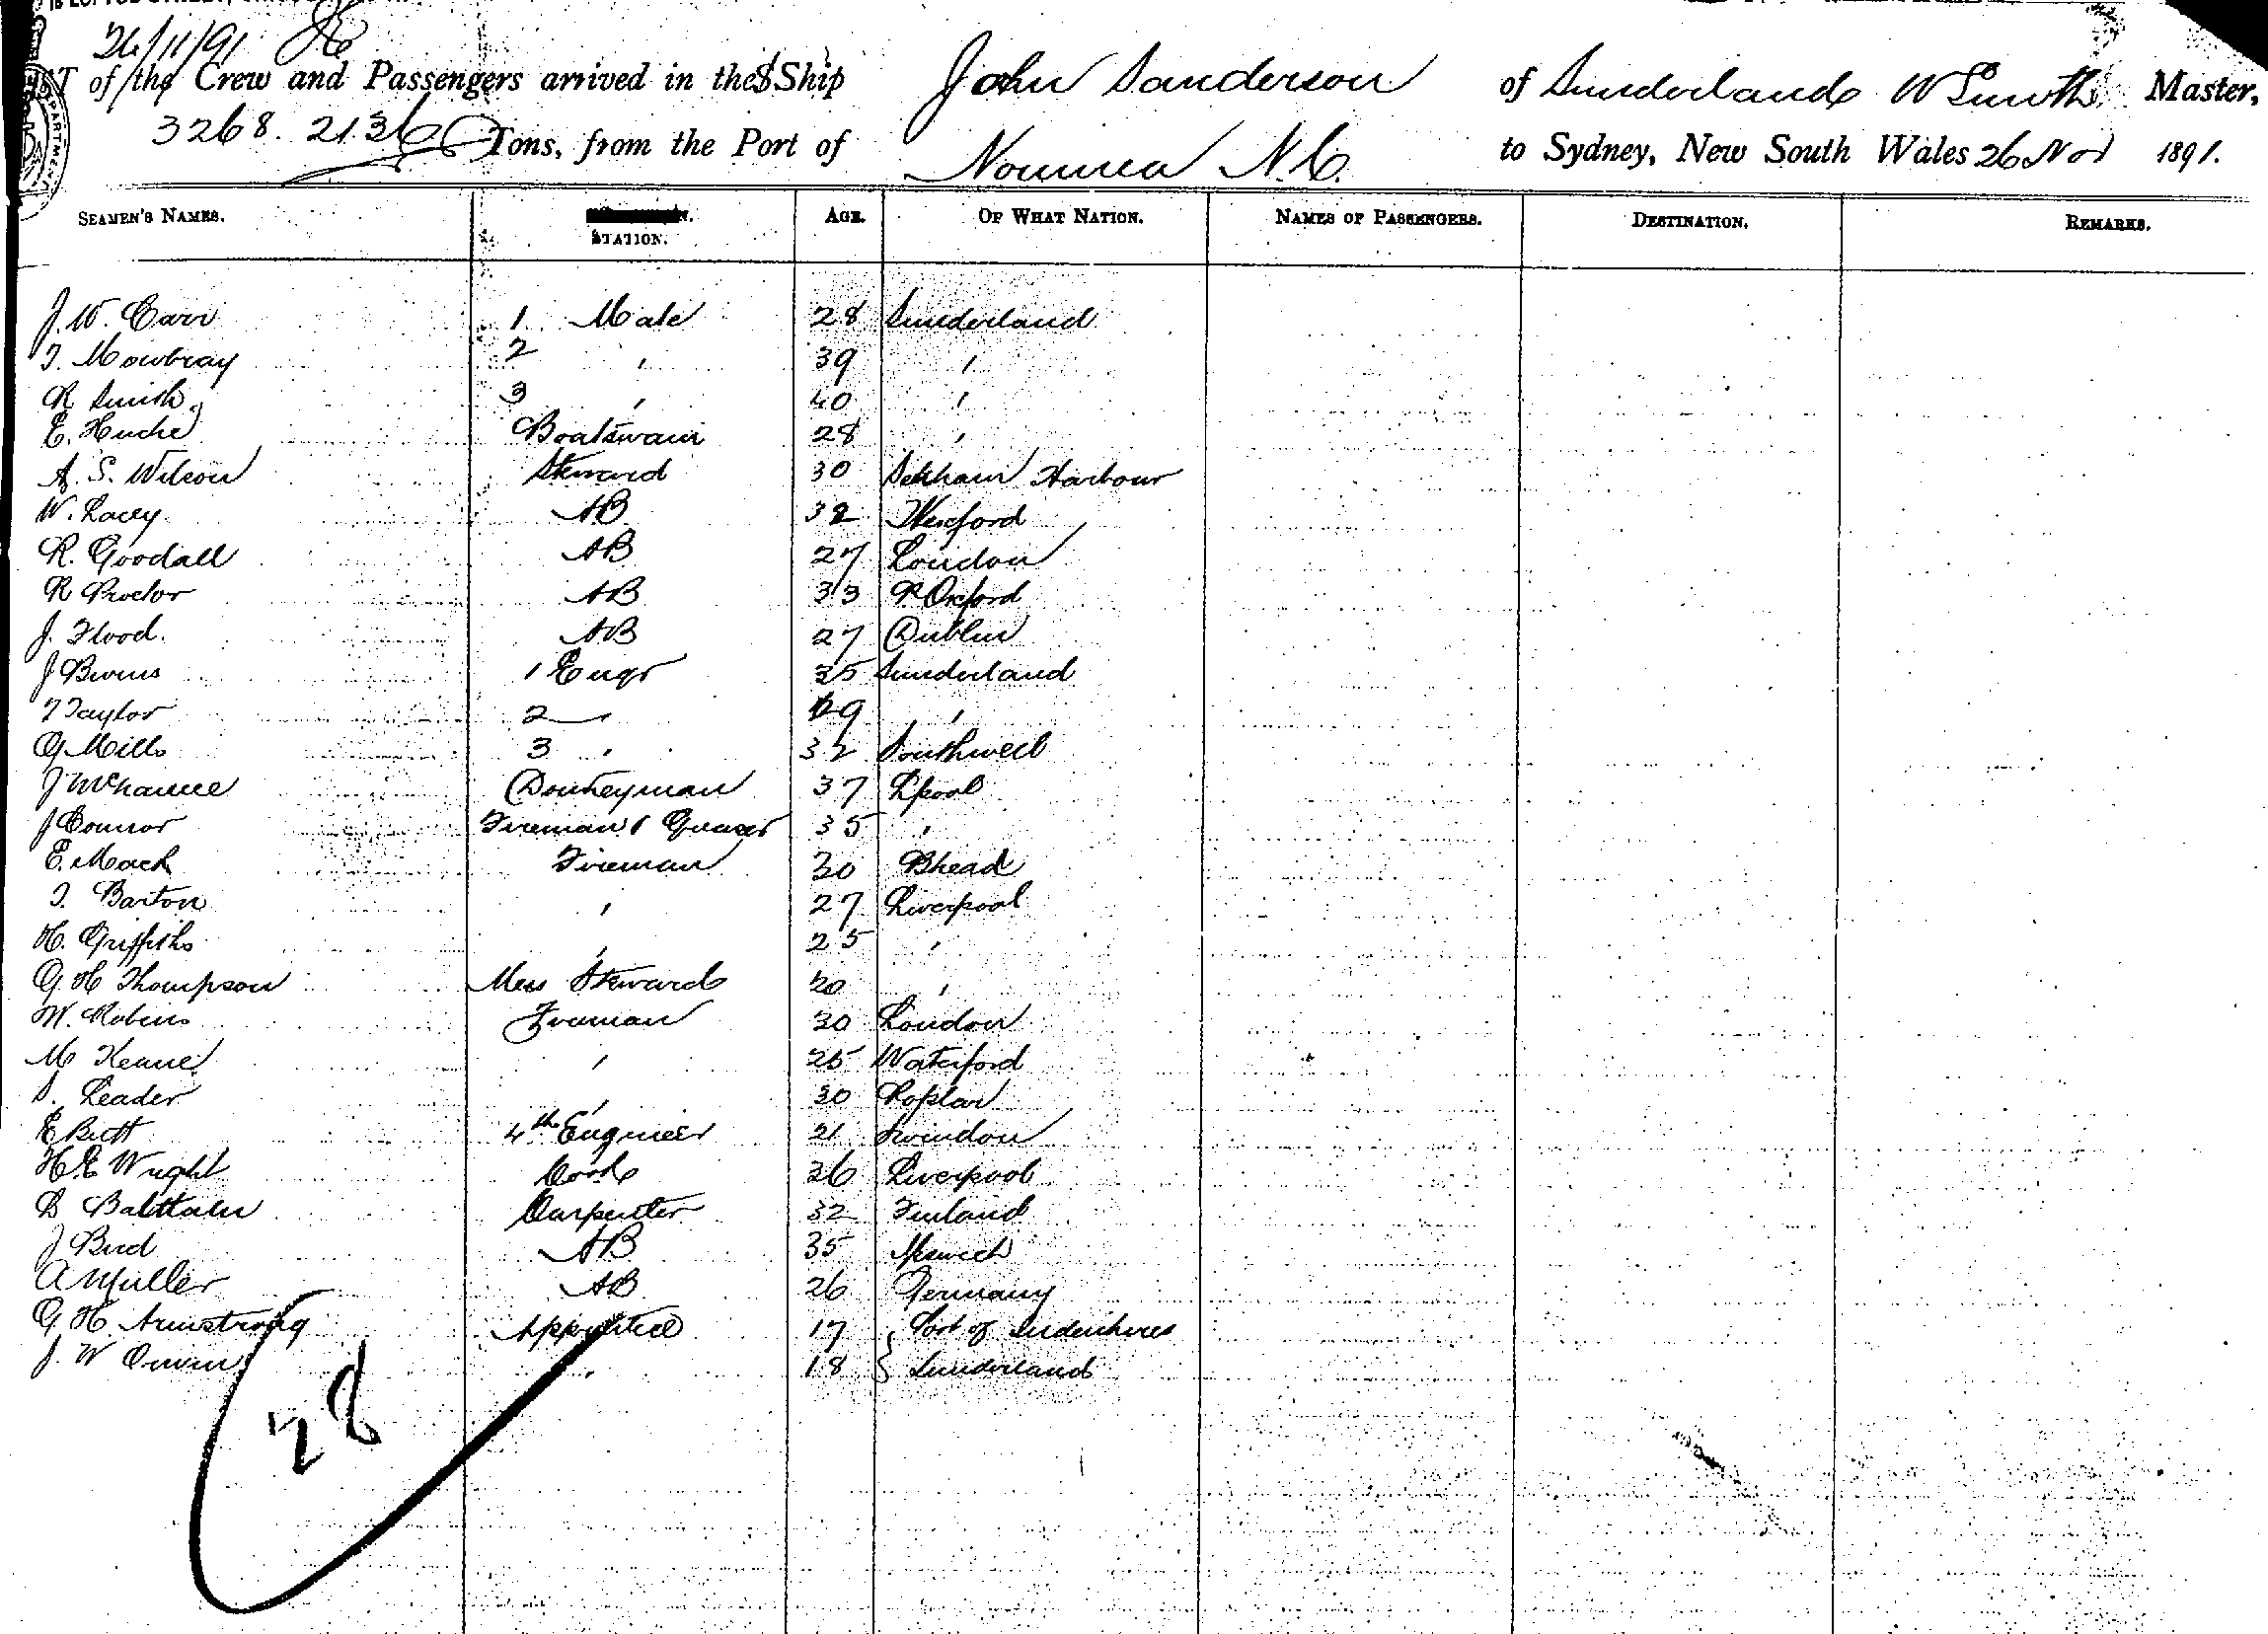 26/11/91
of the Crew and Passengers arrived in the S Ship John Sanderson of Sunderland W Smith Master,
3268. 2136 Tons, from the Port of Noumea N.C. to Sydney, New South Wales 26 Nov 1891.
SEAMEN'S NAMES. STATION. AGE. OF WHAT NATION. NAMES OF PASSENGERS. DESTINATION. REMARKS.
J. W. Carr 1 Mate 28 Sunderland
T. Mowbray 2 " 39 "
R Smith 3 " 40 "
E. Boatswain 28 "
A. S. Wilson Steward 30 Seaham Harbour
W. Lacey AB 38 Wexford
R. Goodall AB 27 London
R Proctor AB 33 Oxford
J. Flood. AB 27 Dublin
J 1 Engr 35 Sunderland
T Taylor 2 " 29 "
G Mills 3 " 32 Southwell
J Donkeyman 37 Lpool
J Connor Fireman & Greaser 35 "
E. Mack Fireman 30 Bhead
T. Barton " 27 Liverpool
H. Griffiths " 25 "
G H Thompson Mess Steward 20 "
W. Robins Fireman 30 London
M Keane " 25 Waterford
S. Leader " 30 Poplar
E Butt 4th Engineer 21 Swindon
H. E Wright Cook 36 Liverpool
Carpenter 32 Finland
J Bird AB 35 Ipswich
A Muller AB 26 Germany
G H. Armstrong Apprentice 17 Port of Indentures
J. W " 18 Sunderland
28